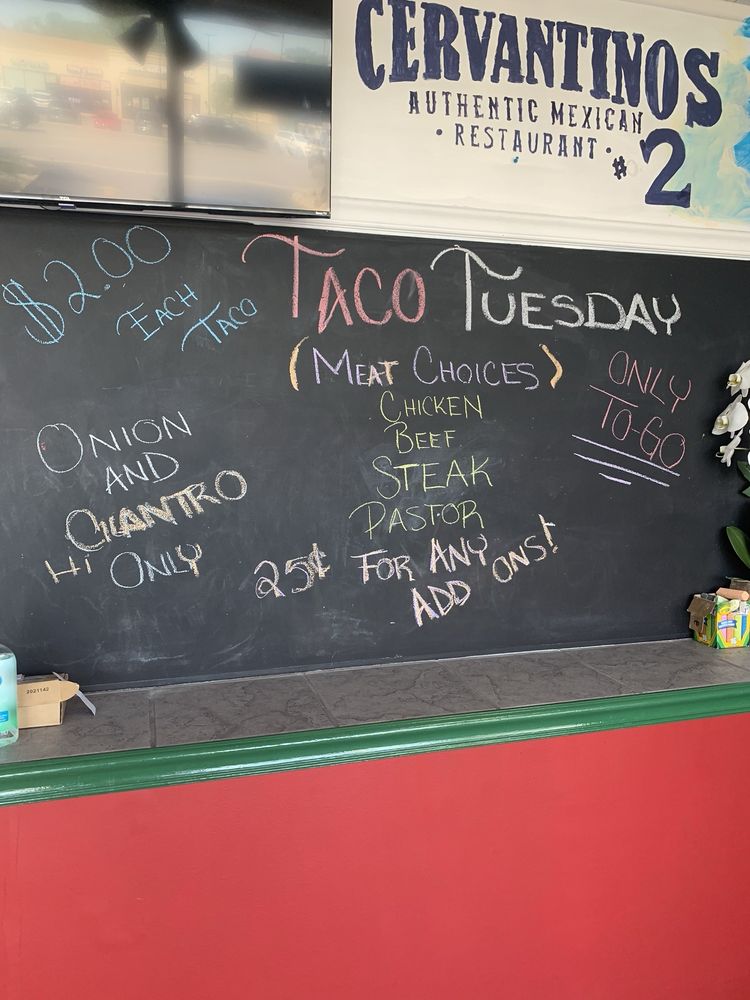 CERVANTINOS
AUTHENTIC MEXICAN
• RESTAURANT •
#2
$2.00
EACH
TACO
TACO TUESDAY
(MEAT CHOICES)
CHICKEN
BEEF
STEAK
PASTOR
ONLY
TO-GO
ONION
AND
CILANTRO
Hi ONLY
25¢ FOR ANY
ADD ONS!
2021142